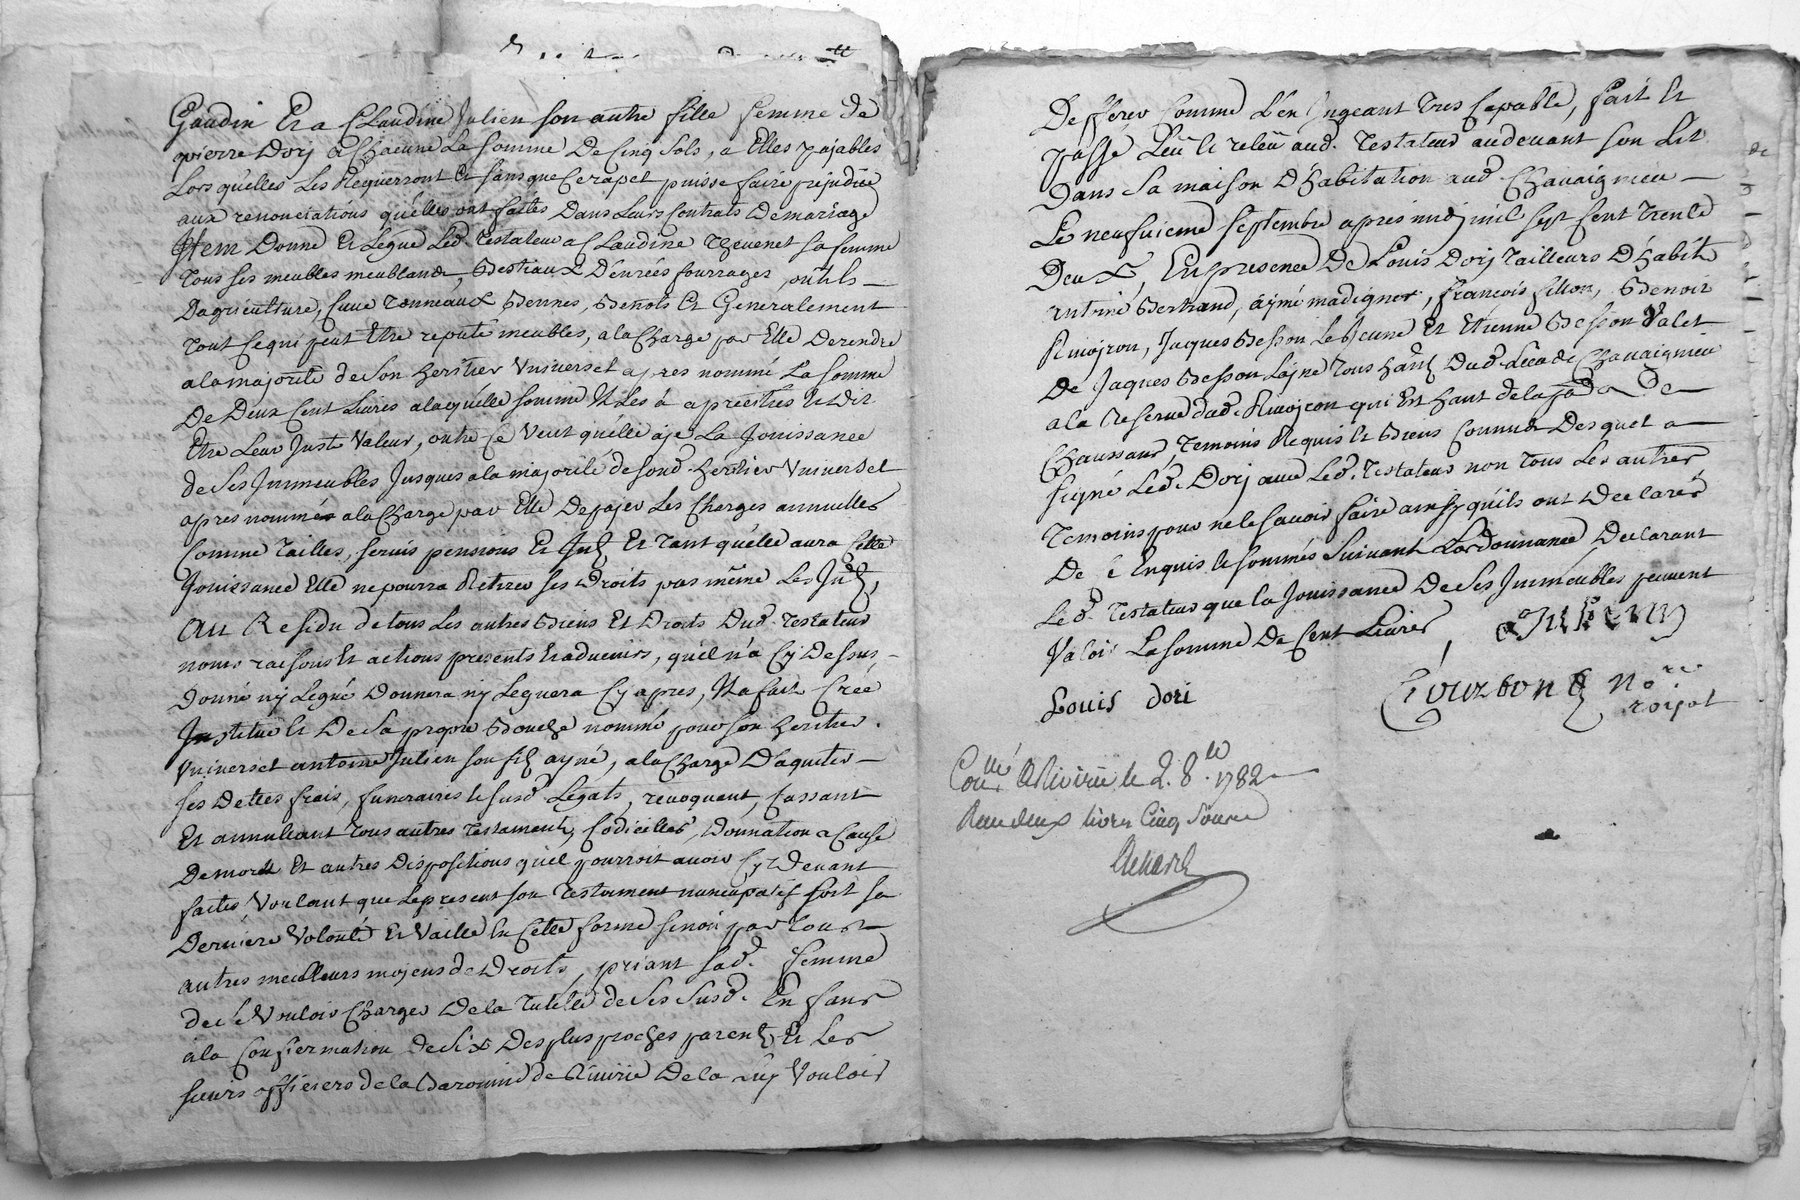 Gaudin Et a Claudine Julien son autre fille femme de
pierre Dorj a Chacune La somme De Cinq sols, a Elles pajables
Lors qu'elles Les Requerront Et sans que Ce rapel puisse faire prejudice
aux renonciations qu'elles ont faites Dans Leurs Contrats De mariage
Item Donne Et Legue Led. Testateur a Claudine Thevenet sa femme
Tous ses meubles meublands, Bestiaux Denrées fourrages, outils
Dagriculture, Cuve Tonneaux Bennes, Benots Et Generalement
Tout Ce qui peut Etre reputé meubles, a la Charge par Elle De rendre
a la majorité de son heritier Universel apres nommé La somme
De Deux Cent Livres a laquelle somme Il Les a apreciés Et Dit
Etre Leur Juste Valeur, outre Ce Veut quélle aje La Jouissance
de Ses Immeubles Jusques a la majorité de sond. heritier Universel
apres nommé a la Charge par Elle De pajer Les Charges annuelles
Comme Tailles, servis pensions Et Et Tant quélle aura Cette
Jouissance Elle ne pourra Retirer ses Droits pas même Les
Au Residu de tous Les autres Biens Et Droits Dud. Testateur
noms raisons Et actions presents Et advenirs, quel n'a Cy Dessus
Donné nij Legué Donnera nij Leguera Cy apres, Il a fait Crée
Institué Et De sa propre Bouche nommé pour son heritier
Universel antoine Julien son fils ayné, a la Charge D'aquiter
ses Dettes frais, funeraires et susd. Legats, revoquant, Cassant
Et annullant Tous autres Testaments, Codicilles, Donnation a Cause
De mort Et autres Dispositions qu'il pourroit avoir Cy Devant
faites, Voulant que Le present son Testament nuncupatif soit sa
Derniere Volonté Et Vaille En Cette forme sinon par tous
autres meilleurs mojens de Droits, priant sad. femme
de se Vouloir Charger De la Tutelle de Ses Susd. Enfans
a la Confirmation de Six Des plus proches parents Et Les
sieurs officiers de la Baronnie de Riverie De la luy Vouloir
Defferer Comme L'en Jugeant Tres Capable, fait Et
passé Leü Et releü aud. Testateur au devant son Lit
Dans Sa maison D'habitation aud. Chavaignieu
Le neufvieme septembre apres midj mil sept Cent Trente
Deux, En presence De Louis Dorij Tailleurs D'habits
antoine Bertrand, aymé madignier, françois fillon, Benoit
Rivojron, Jaques Besson Le Jeune Et Etienne Besson Valet
De Jaques Besson Lajne Tous Dud. Lieu de Chavaignieu
a la Reserve dud. Rivojron qui Est hant de la De
Chaussand, Temoins Requis Et Biens Connus Desquel a
signé Led. Dorj avec Led. Testateur non Tous Les autres
Temoins pour ne le savoir faire ainsy qu'ils ont Declarés
De ce Enquis et sommés Suivant Lordonnance Declarant
Led. Testateur que la Jouissance De Ses Immeubles peuvent
Valoir La somme De Cent Livres,
Louis Dori
No.re
roijal
Con.llé A Riverie le 2. 8.bre 1732
Reçu deux livres Cinq Sous